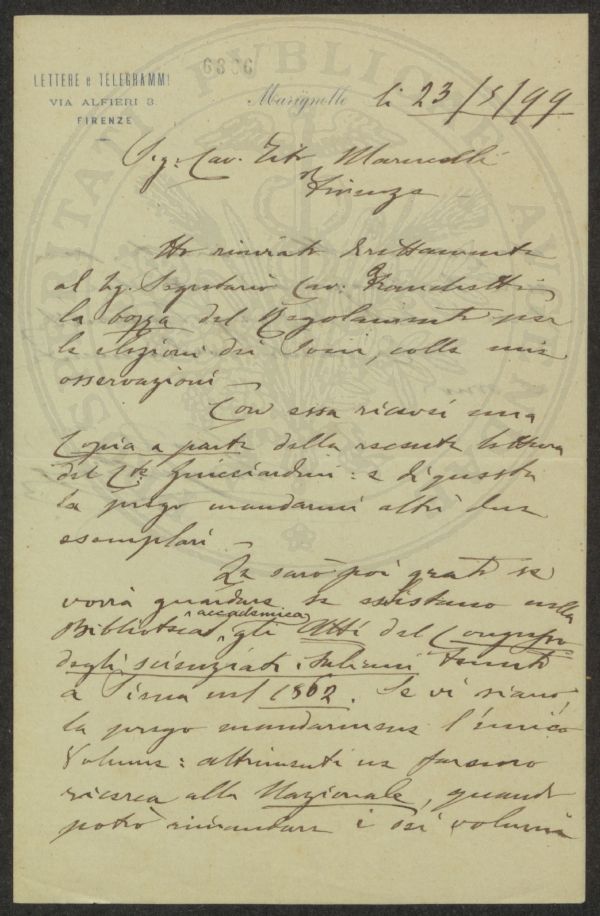 6866
LETTERE e TELEGRAMMI
VIA ALFIERI 3.
FIRENZE
Marignolle li 23/5/99
Sig: Cav. Marucelli
Firenze
Ho rinviato direttamente
al Sig. Segretario Cav. Franchetti
la bozza del Regolamento per
le elezioni dei Soci, colle mie
osservazioni.
Con essa ricevei una
Copia a parte della recente lettura
del Cte Guicciardini: e di questa
la prego mandarmi altri due
esemplari.
Le sarò poi grato se
vorrà guardare se esistano nella
Biblioteca accademica, gli Atti del Congresso
degli scienziati italiani tenuto
a Siena nel 1862. Se vi siano
la prego mandarmene l'unico
Volume: altrimenti ne faremo
ricerca alla Nazionale, quando
potrò rimandare i sei volumi